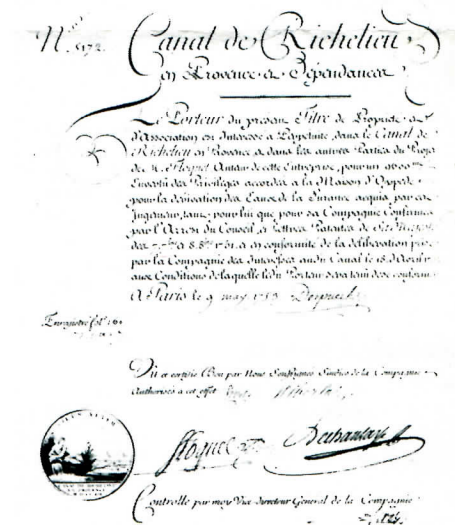 N.° 5172.
Canal de Richelieu
en Provence et Dépendances
Le Porteur du present Titre de Propriete et
d'Association est Interessé à Perpétuité dans le Canal de
Richelieu en Provence et dans les autres Parties du Projet
de M. Floquet Auteur de cette Entreprise, pour un
Ensuite des Privileges accordez a la Maison d'Oppede
pour la derivation des Eaux de la Durance acquis par cet
Ingenieur, tant pour lui que pour sa Compagnie Confirmez
par l'Arrest du Conseil et Lettres Patentes de Sa Majesté
des et 8. 1751. et en conformité de la déliberation prise
par la Compagnie des Interessez audit Canal le 18. d'Avril
aux Conditions de laquelle le dit Porteur sera tenu de se conformer
A Paris le 9 may 1753
Enregistré fol.
Vû et certifié Bon par Nous Soussignés Sindics de la Compagnie
Authorisés a cet effet
Floquet
Controllé par moy Vice Directeur General de la Compagnie